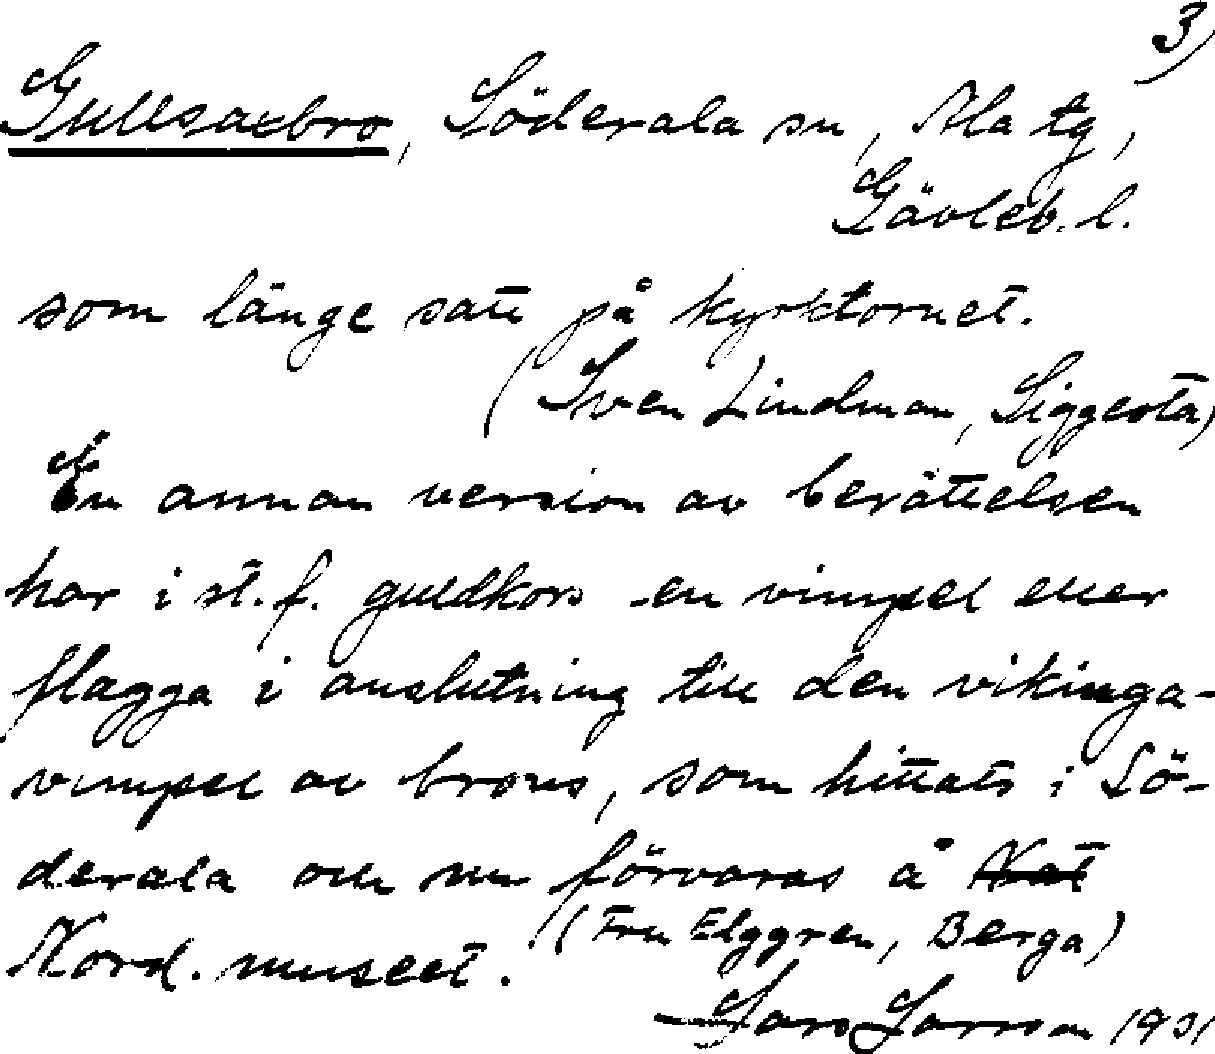 3)
Gullsaxbro, Söderala sn, Ala tg,
Gävleb. l.
som länge satt på kyrktornet.
(Sven Lindman, Siggesta)
En annan version av berättelsen
har i st. f. guldkors en vimpel eller
flagga i anslutning till den vikinga-
vimpel av brons, som hittats i Sö-
derala och nu förvaras å Nat
Nord. museet.
(Fru Elggren, Berga)
Lars Larsson 1931